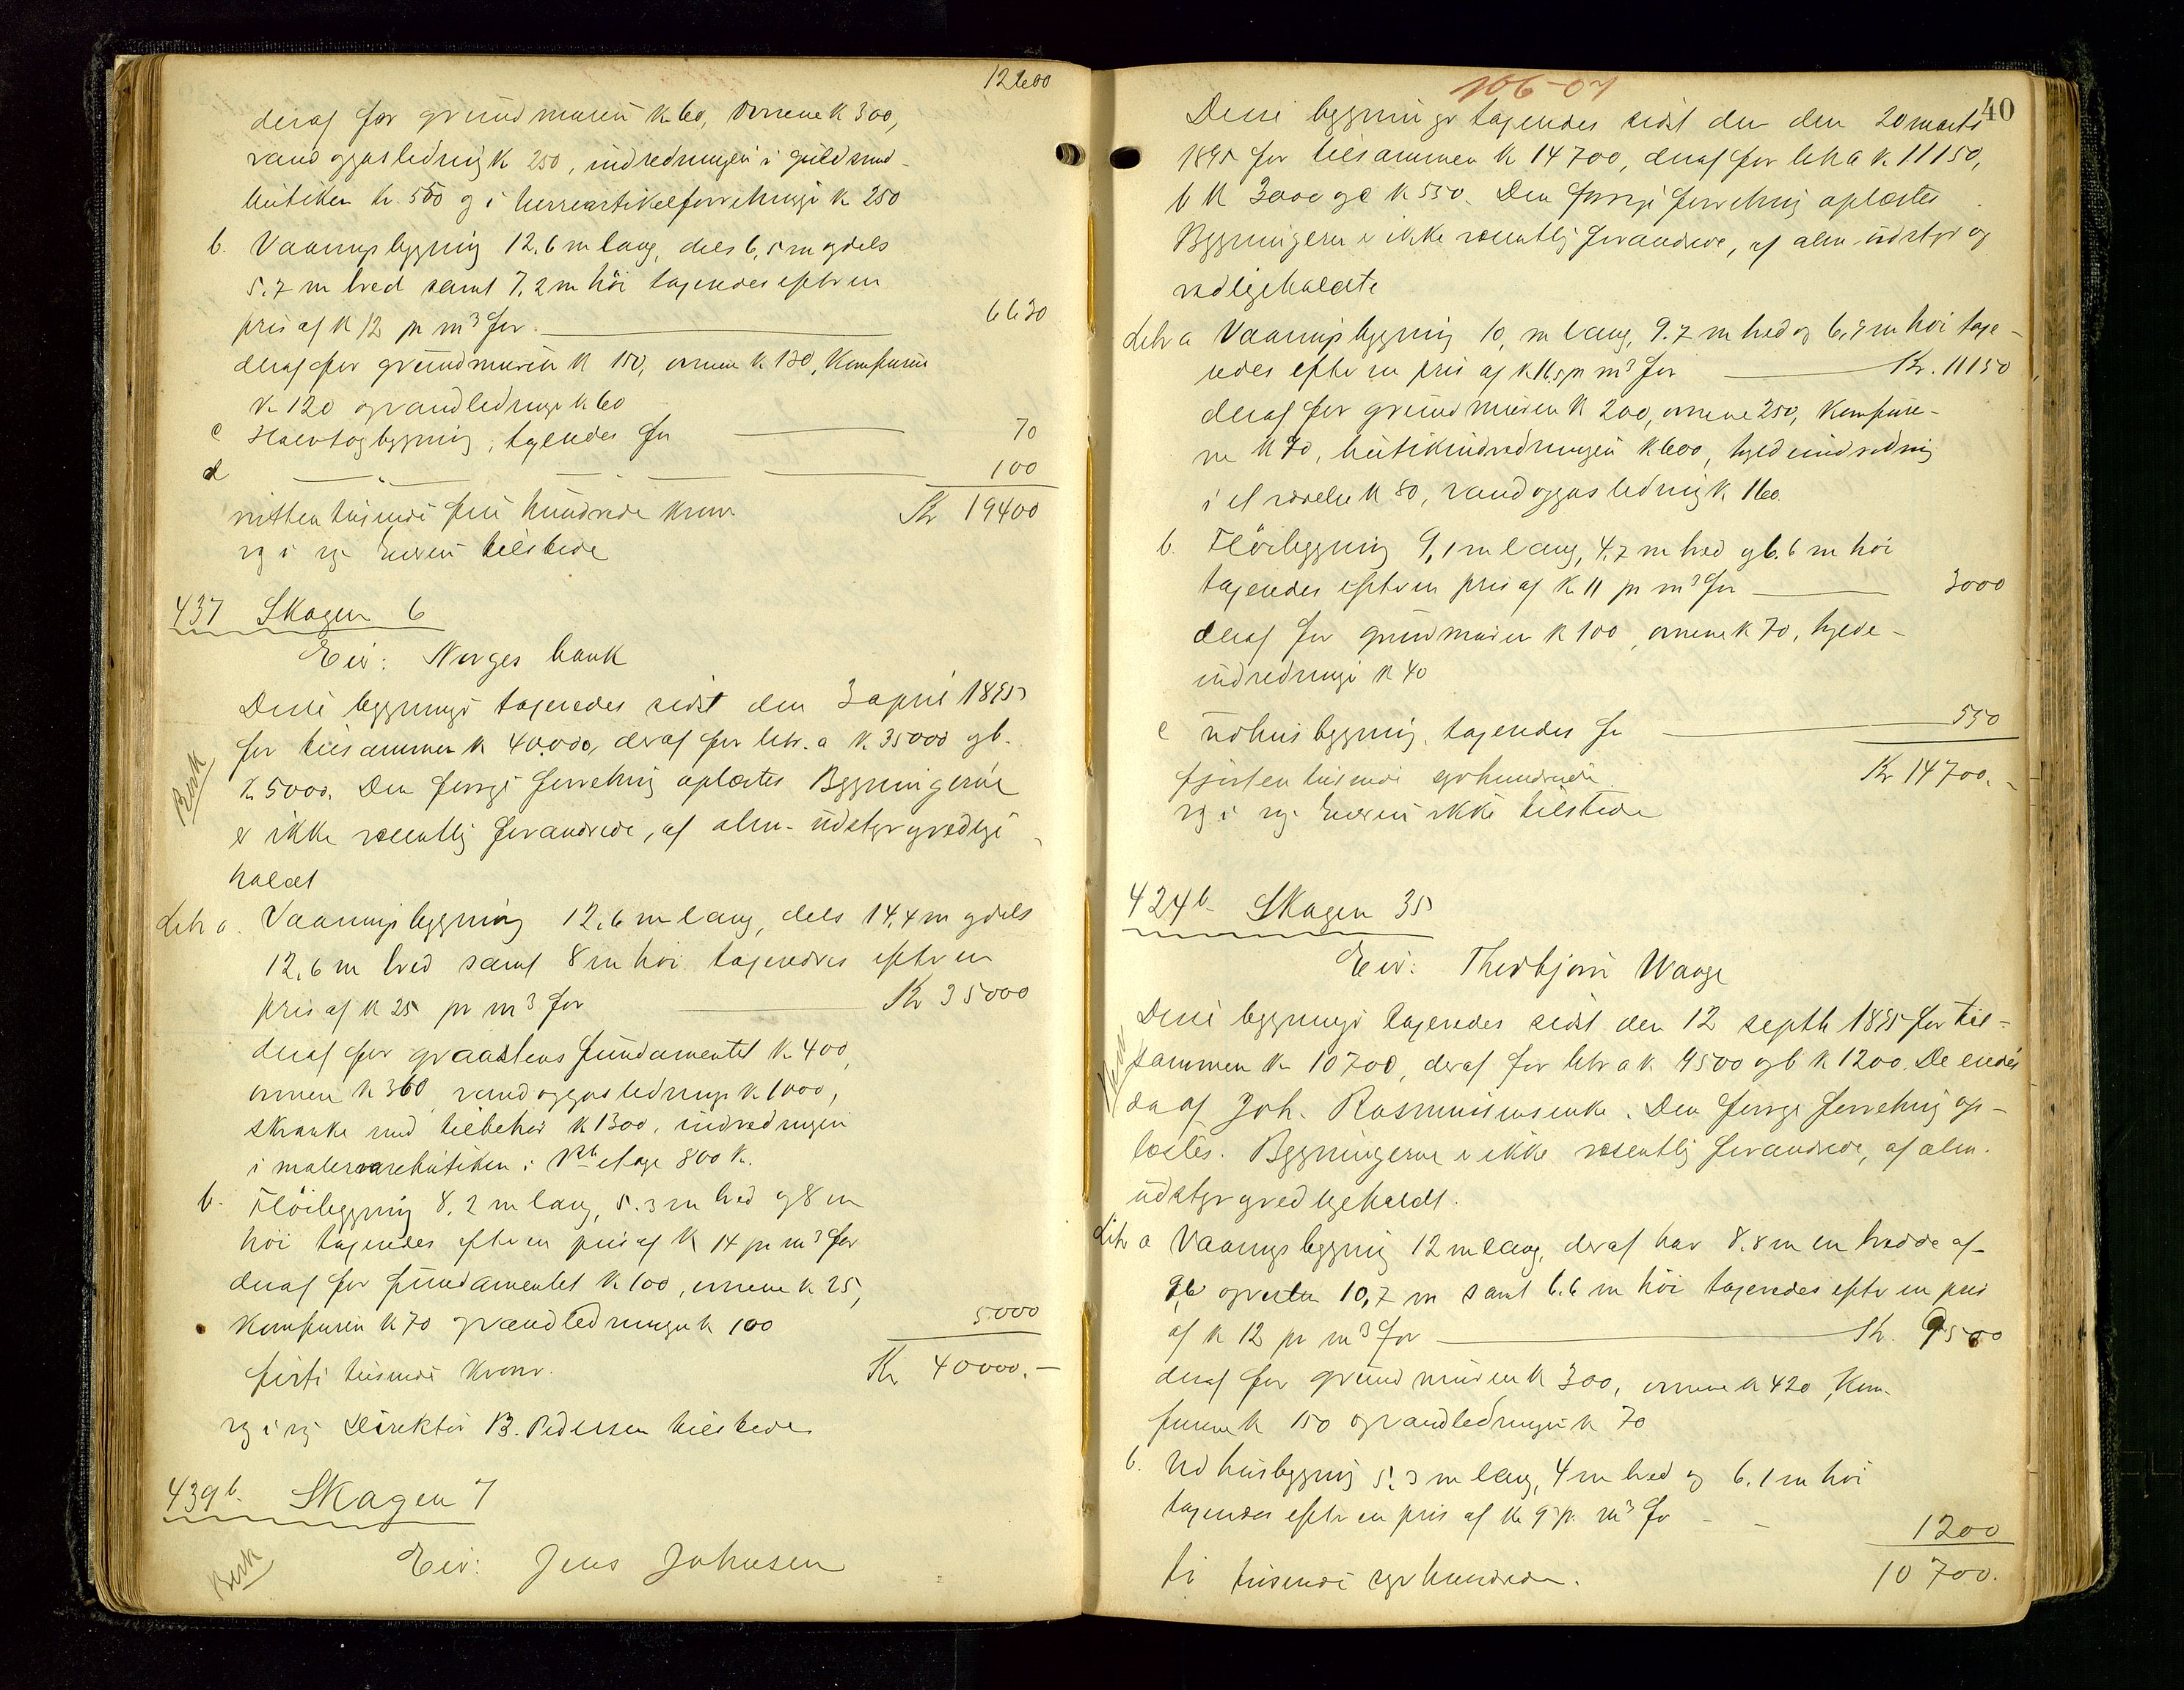 12600
deraf for grundmuren K 60, ovnene K 300,
vand og gasledning K 250, indredningen i guldsmed-
butiken kr. 550 og i herreartikelforretningen K 250
b. Vaaningsbygning 12,6 m lang, dels 6,5 m og dels
5,7 m bred samt 7,2 m höi tageredes efter en
pris af K 12 pr m³ for 6630
deraf for grundmuren K 150, ovnene K 130, Komfurene
K 120 og vandledninge K 60
c Halvtagbygning, tageredes for 70
d — „ — — — 100
nitten tusinde fire hundrede kroner Kr 19400
eg i eg Eieren tilstede
437 Skagen 6
Eier: Norges bank
Disse bygninger tageredes sidst den 3 april 1895
for tilsammen K 40.000, deraf for litr. a K. 35000 og b.
K 5000. Den forrige forretning oplæstes Bygningerne
er ikke væsentlig forandrede, af alm. udstyr og vedlige
holdt
Besk
Litr a. Vaaningsbygning 12,6 m lang, dels 14,4 m og dels
12,6 m bred samt 8 m höi tageredes efter en
pris af K 25 pr m³ for Kr 35000
deraf for graastens fundamentet K. 400,
ovnene K 360, vand og gasledninge K 1000,
skranke med tilbehör K 1300, indredningen
i malervarebutiken i 1ste etage 800 K.
b. Flöibygning 8,2 m lang, 5.3 m bred og 8 m
höi tageredes efter en pris af K 14 pr m³ for
deraf for fundamentet K 100, ovnene K 25,
Komfuren K 70 og vandledningen K 100 5000
firti tusinde kroner. Kr 40000.—
eg i eg Direktör B. Pedersen tilstede
439 b. Skagen 7
Besk
Eier: Jens Johnsen
106-07
40
Disse bygninger tageredes sidst den 20 marts
1895 for tilsammen K 14700, deraf for litr a K 11150,
b K 3000 og c K 550. Den forrige forretning oplæstes
Bygningerne er ikke væsentlig forandrede, af alm. udstyr og
vedligeholdte
Litr a Vaaningsbygning 10, m lang, 9.7 m bred og 6,9 m höi tage-
redes efter en pris af K 16,5 pr m³ for Kr. 11150
deraf for grundmuren K 200, ovnene 250, Komfure-
ne K 70, butikindredningen K 600, hyldeindredning
i et værelse K 80, vand og gasledning K 160.
b. Flöibygning 9,1 m lang, 4,7 m bred og 6.6 m höi
tageredes efter en pris af K 11 pr m³ for 3000
deraf for grundmuren K 100, ovnene K 70, hylde-
indredninge K 40
c Udhusbygning, tageredes for 550
fjorten tusinde syvhundrede Kr 14700.-
eg i eg. Eieren ikke tilstede
424 b. Skagen 35
Eier: Thorbjörn Waage
Disse bygninger tageredes sidst den 12 septb 1895 for til-
sammen K 10700, deraf for litr a K 9500 og b K 1200. De eiedes
da af Joh. Rasmussens enke. Den forrige forretning op-
læstes. Bygningerne er ikke væsentlig forandrede, af alm.
udstyr og vedligeholdt.
Litr a Vaaningsbygning 12 m lang, deraf har 8.8 m en bredde af
9,6 og resten 10,7 m samt 6.6 m höi tageredes efter en pris
af K 12 pr m³ for Kr. 9500
deraf for grundmuren K 300, ovnene K 420, Kom-
furene K 150 og vandledningen K 70
b. Udhusbygning 5.3 m lang, 4 m bred og 6.1 m höi
tageredes efter en pris af K 9 pr. m³ for - - 1200
ti tusinde syvhundrede. 10700.